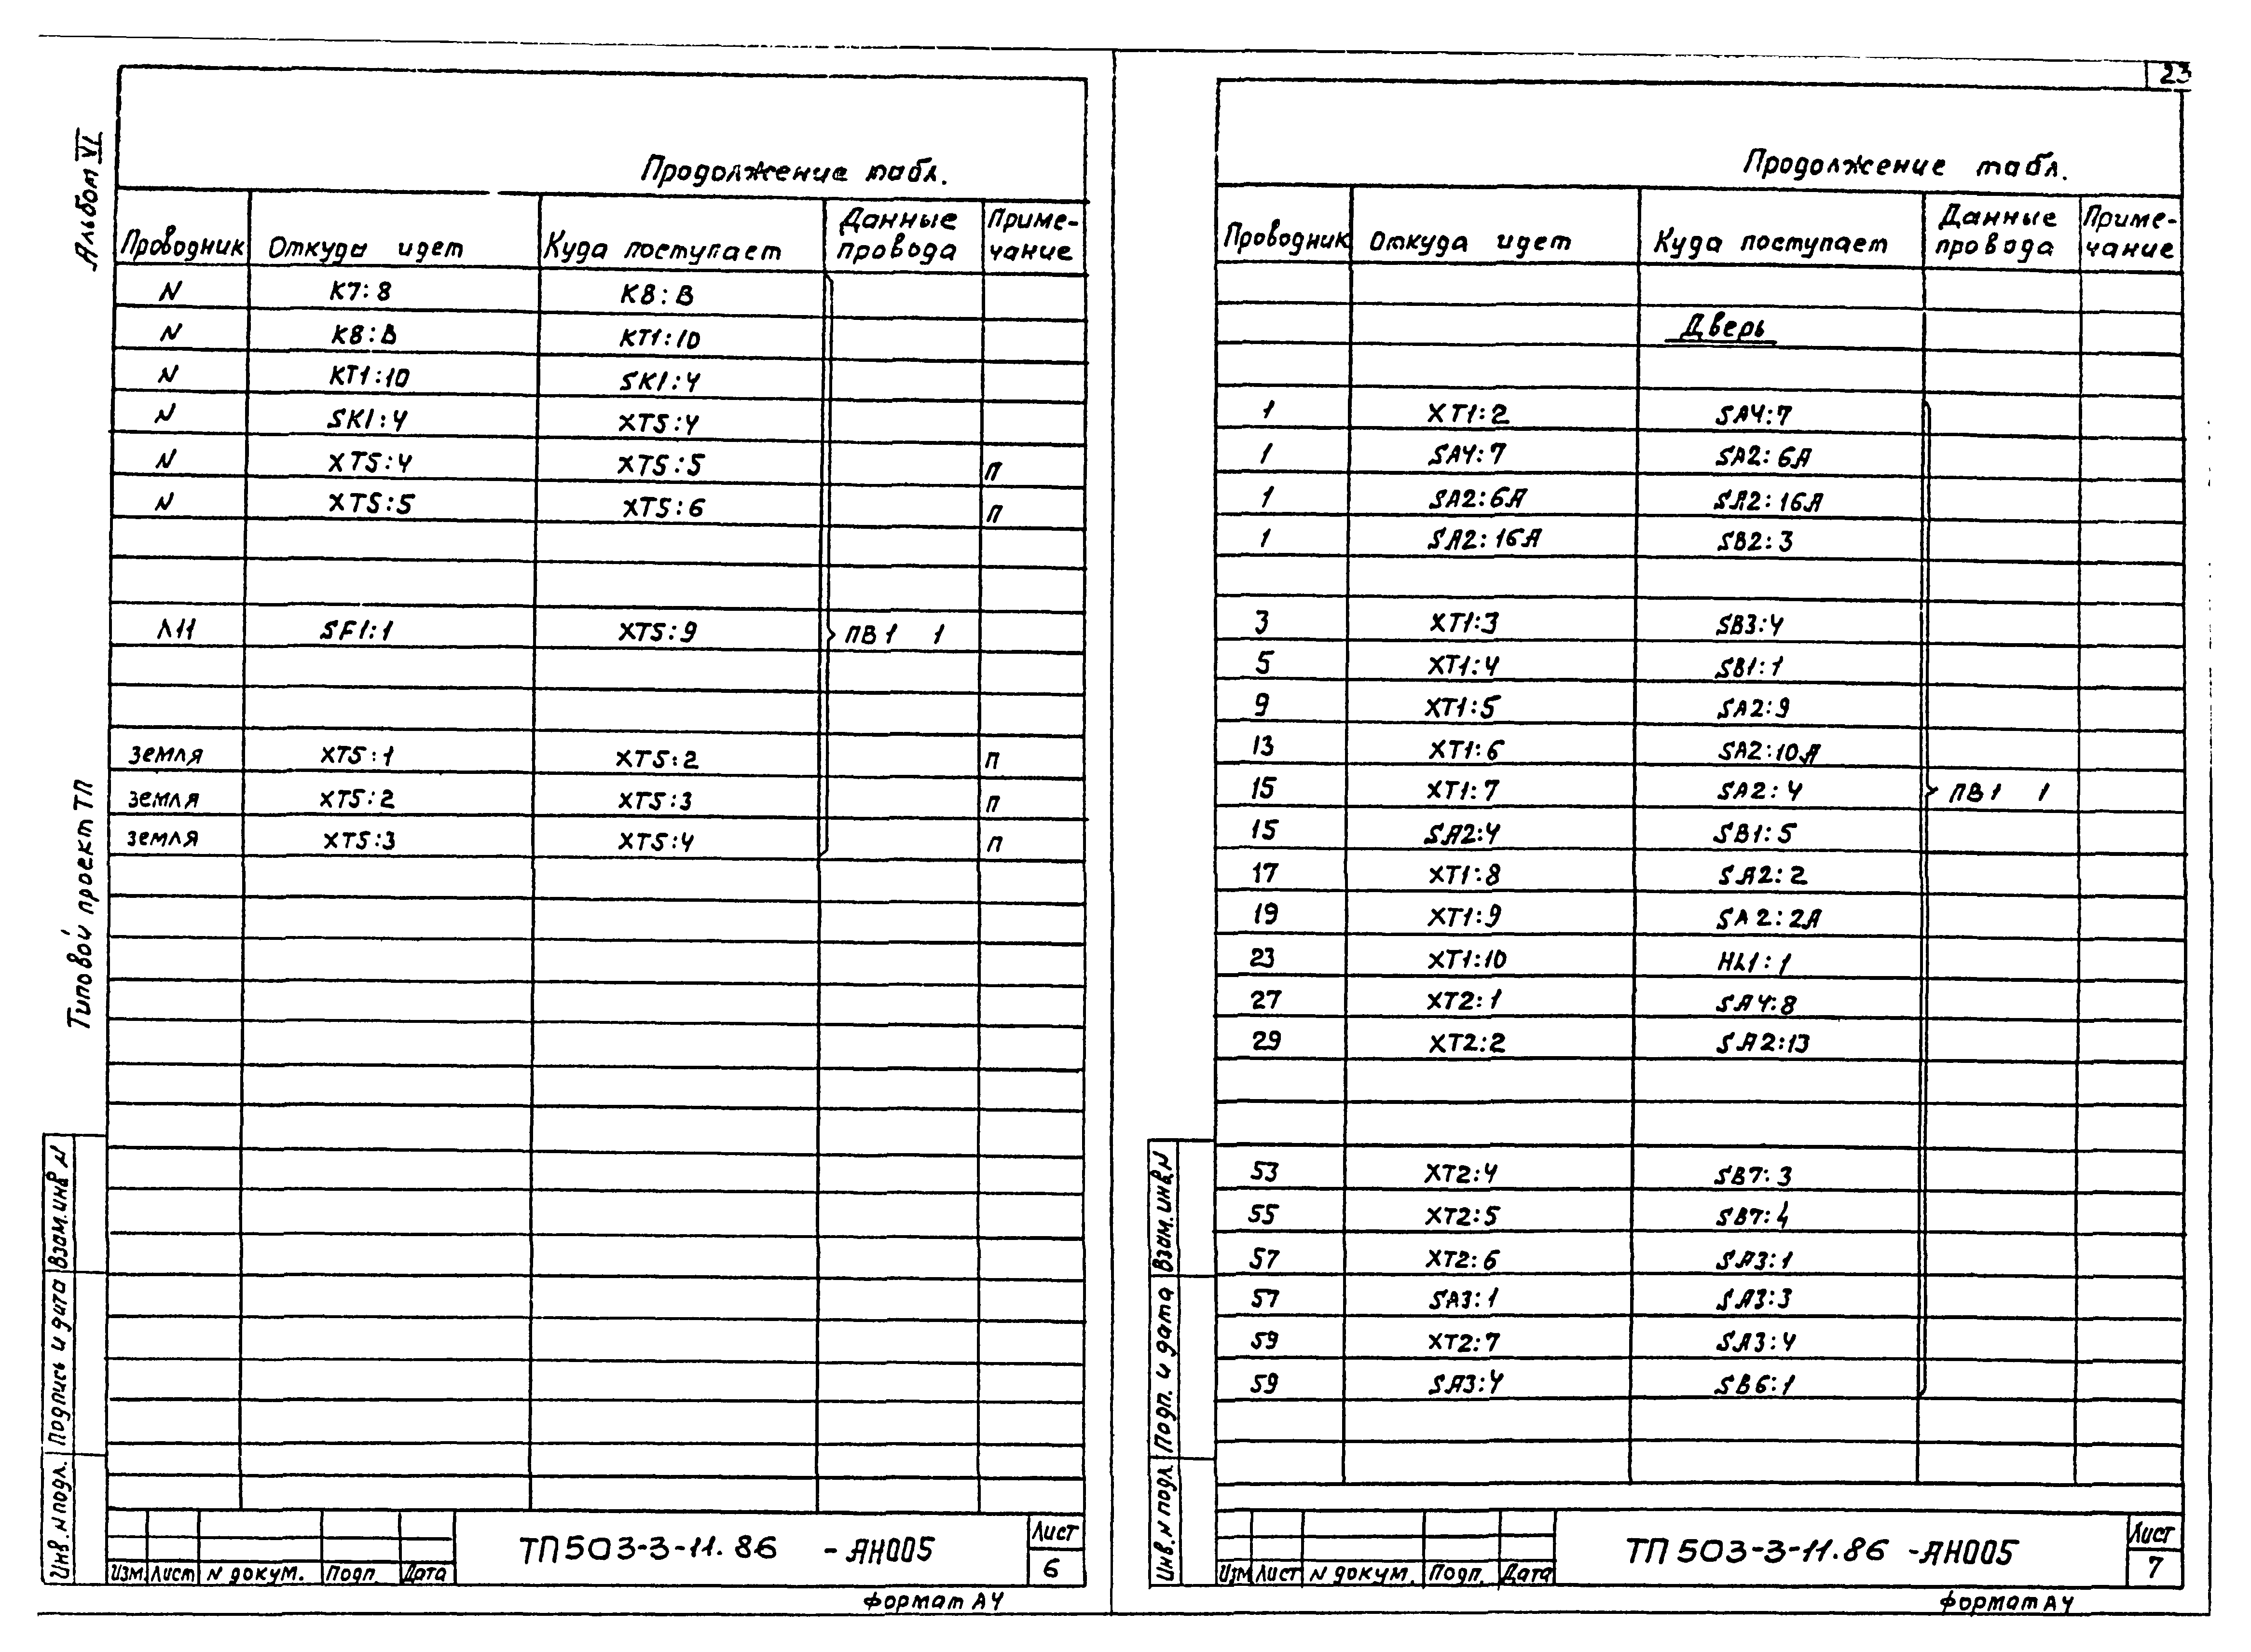 23
Альбом VI
Типовой проект ТП
Продолжение табл.
Проводник Откуда идет Куда поступает Данные провода Приме-чание
N К7:8 К8:В
N К8:В КТ1:10
N КТ1:10 SK1:4
N SK1:4 XT5:4
N XT5:4 XT5:5 П
N XT5:5 XT5:6 П
Л11 SF1:1 XT5:9 ПВ1 1
земля XT5:1 XT5:2 П
земля XT5:2 XT5:3 П
земля XT5:3 XT5:4 П
Инв. N подл. Подпись и дата Взам. инв N
Изм. Лист N докум. Подп. Дата
ТП 503-3-11.86 -АН005
Лист
6
формат А4
Продолжение табл.
Проводник Откуда идет Куда поступает Данные провода Приме-чание
Дверь
1 XT1:2 SA4:7
1 SA4:7 SA2:6А
1 SA2:6А SA2:16А
1 SA2:16А SB2:3
3 XT1:3 SB3:4
5 XT1:4 SB1:1
9 XT1:5 SA2:9
13 XT1:6 SA2:10А
15 XT1:7 SA2:4 ПВ1 1
15 SA2:4 SB1:5
17 XT1:8 SA2:2
19 XT1:9 SA2:2А
23 XT1:10 HL1:1
27 XT2:1 SA4:8
29 XT2:2 SA2:13
53 XT2:4 SB7:3
55 XT2:5 SB7:4
57 XT2:6 SA3:1
57 SA3:1 SA3:3
59 XT2:7 SA3:4
59 SA3:4 SB6:1
Инв. N подл. Подп. и дата Взам. инв. N
Изм Лист N докум. Подп. Дата
ТП 503-3-11.86 -АН005
Лист
7
формат А4